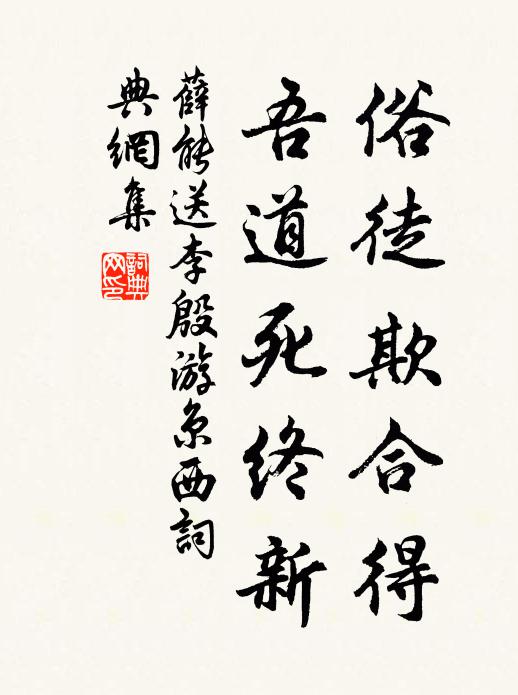 俗徒欺合得
吾道死终新
薛能送李殷游京西詞
典網集
詞典网印